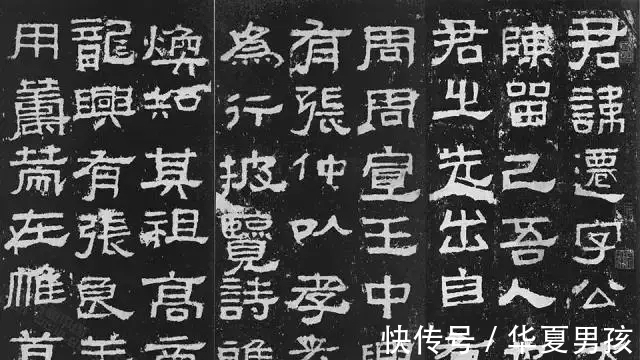 君諱遷字公
陳留己吾人
君之先出自
周周宣王中
有張仲以孝
為行披覽詩
煥知其祖高
龍興有張良
用籌策在帷
快传号 / 华夏男孩